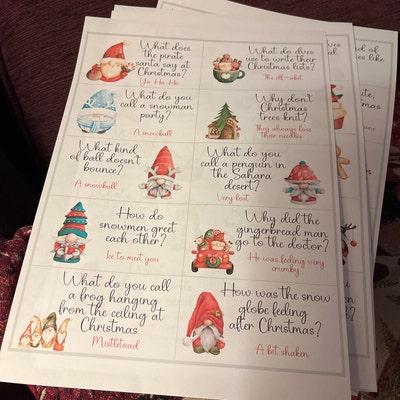 What does
the pirate
santa say at
Christmas?
Yo Ho Ho
What do elves
use to write their
Christmas lists?
The elf-abit
What do you
call a snowman
party?
A snowball
Why don't
Christmas
trees knit?
They always lose
their needles
What kind
of ball doesn't
bounce?
A snowball
What do you
call a penguin in
the Sahara
desert?
Very lost
How do
snowmen greet
each other?
Ice to meet you
Why did the
gingerbread man
go to the doctor?
He was feeling very
crumby
What do you call
a frog hanging
from the ceiling at
Christmas
Mistletoad
How was the snow
globe feeling
after Christmas?
A bit shaken